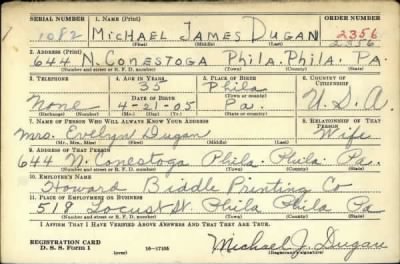 SERIAL NUMBER 1. NAME (Print) ORDER NUMBER
1082 MICHAEL JAMES DUGAN 2356
(First) (Middle) (Last) 2356
2. ADDRESS (Print)
644 N. CONESTOGA PHILA. PHILA. PA.
(Number and street or R. F. D. number) (Town) (County) (State)
3. TELEPHONE 4. AGE IN YEARS 5. PLACE OF BIRTH 6. COUNTRY OF CITIZENSHIP
None 35 Phila U.S.A
DATE OF BIRTH (Town or county)
4-21-05 Pa.
(Exchange) (Number) (Mo.) (Day) (Yr.) (State or country)
7. NAME OF PERSON WHO WILL ALWAYS KNOW YOUR ADDRESS 8. RELATIONSHIP OF THAT PERSON
Mrs. Evelyn Dugan Wife
(Mr., Mrs., Miss) (First) (Middle) (Last)
9. ADDRESS OF THAT PERSON
644 N. Conestoga Phila. Phila. Pa.
(Number and street or R. F. D. number) (Town) (County) (State)
10. EMPLOYER'S NAME
Howard Biddle Printing Co
11. PLACE OF EMPLOYMENT OR BUSINESS
518 Locust St. Phila Phila Pa
(Number and street or R. F. D. number) (Town) (County) (State)
I AFFIRM THAT I HAVE VERIFIED ABOVE ANSWERS AND THAT THEY ARE TRUE.
REGISTRATION CARD
D. S. S. Form 1 (over) 16-17105 Michael J. Dugan
(Registrant's signature)